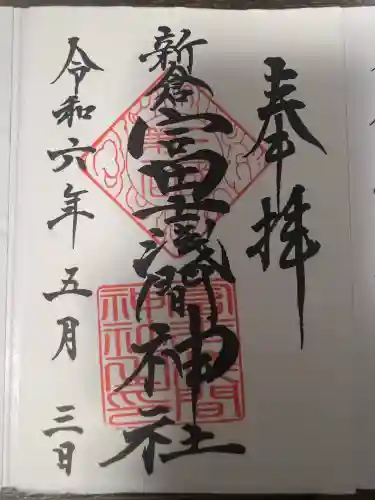 奉拝
新倉富士浅間神社
令和六年五月三日